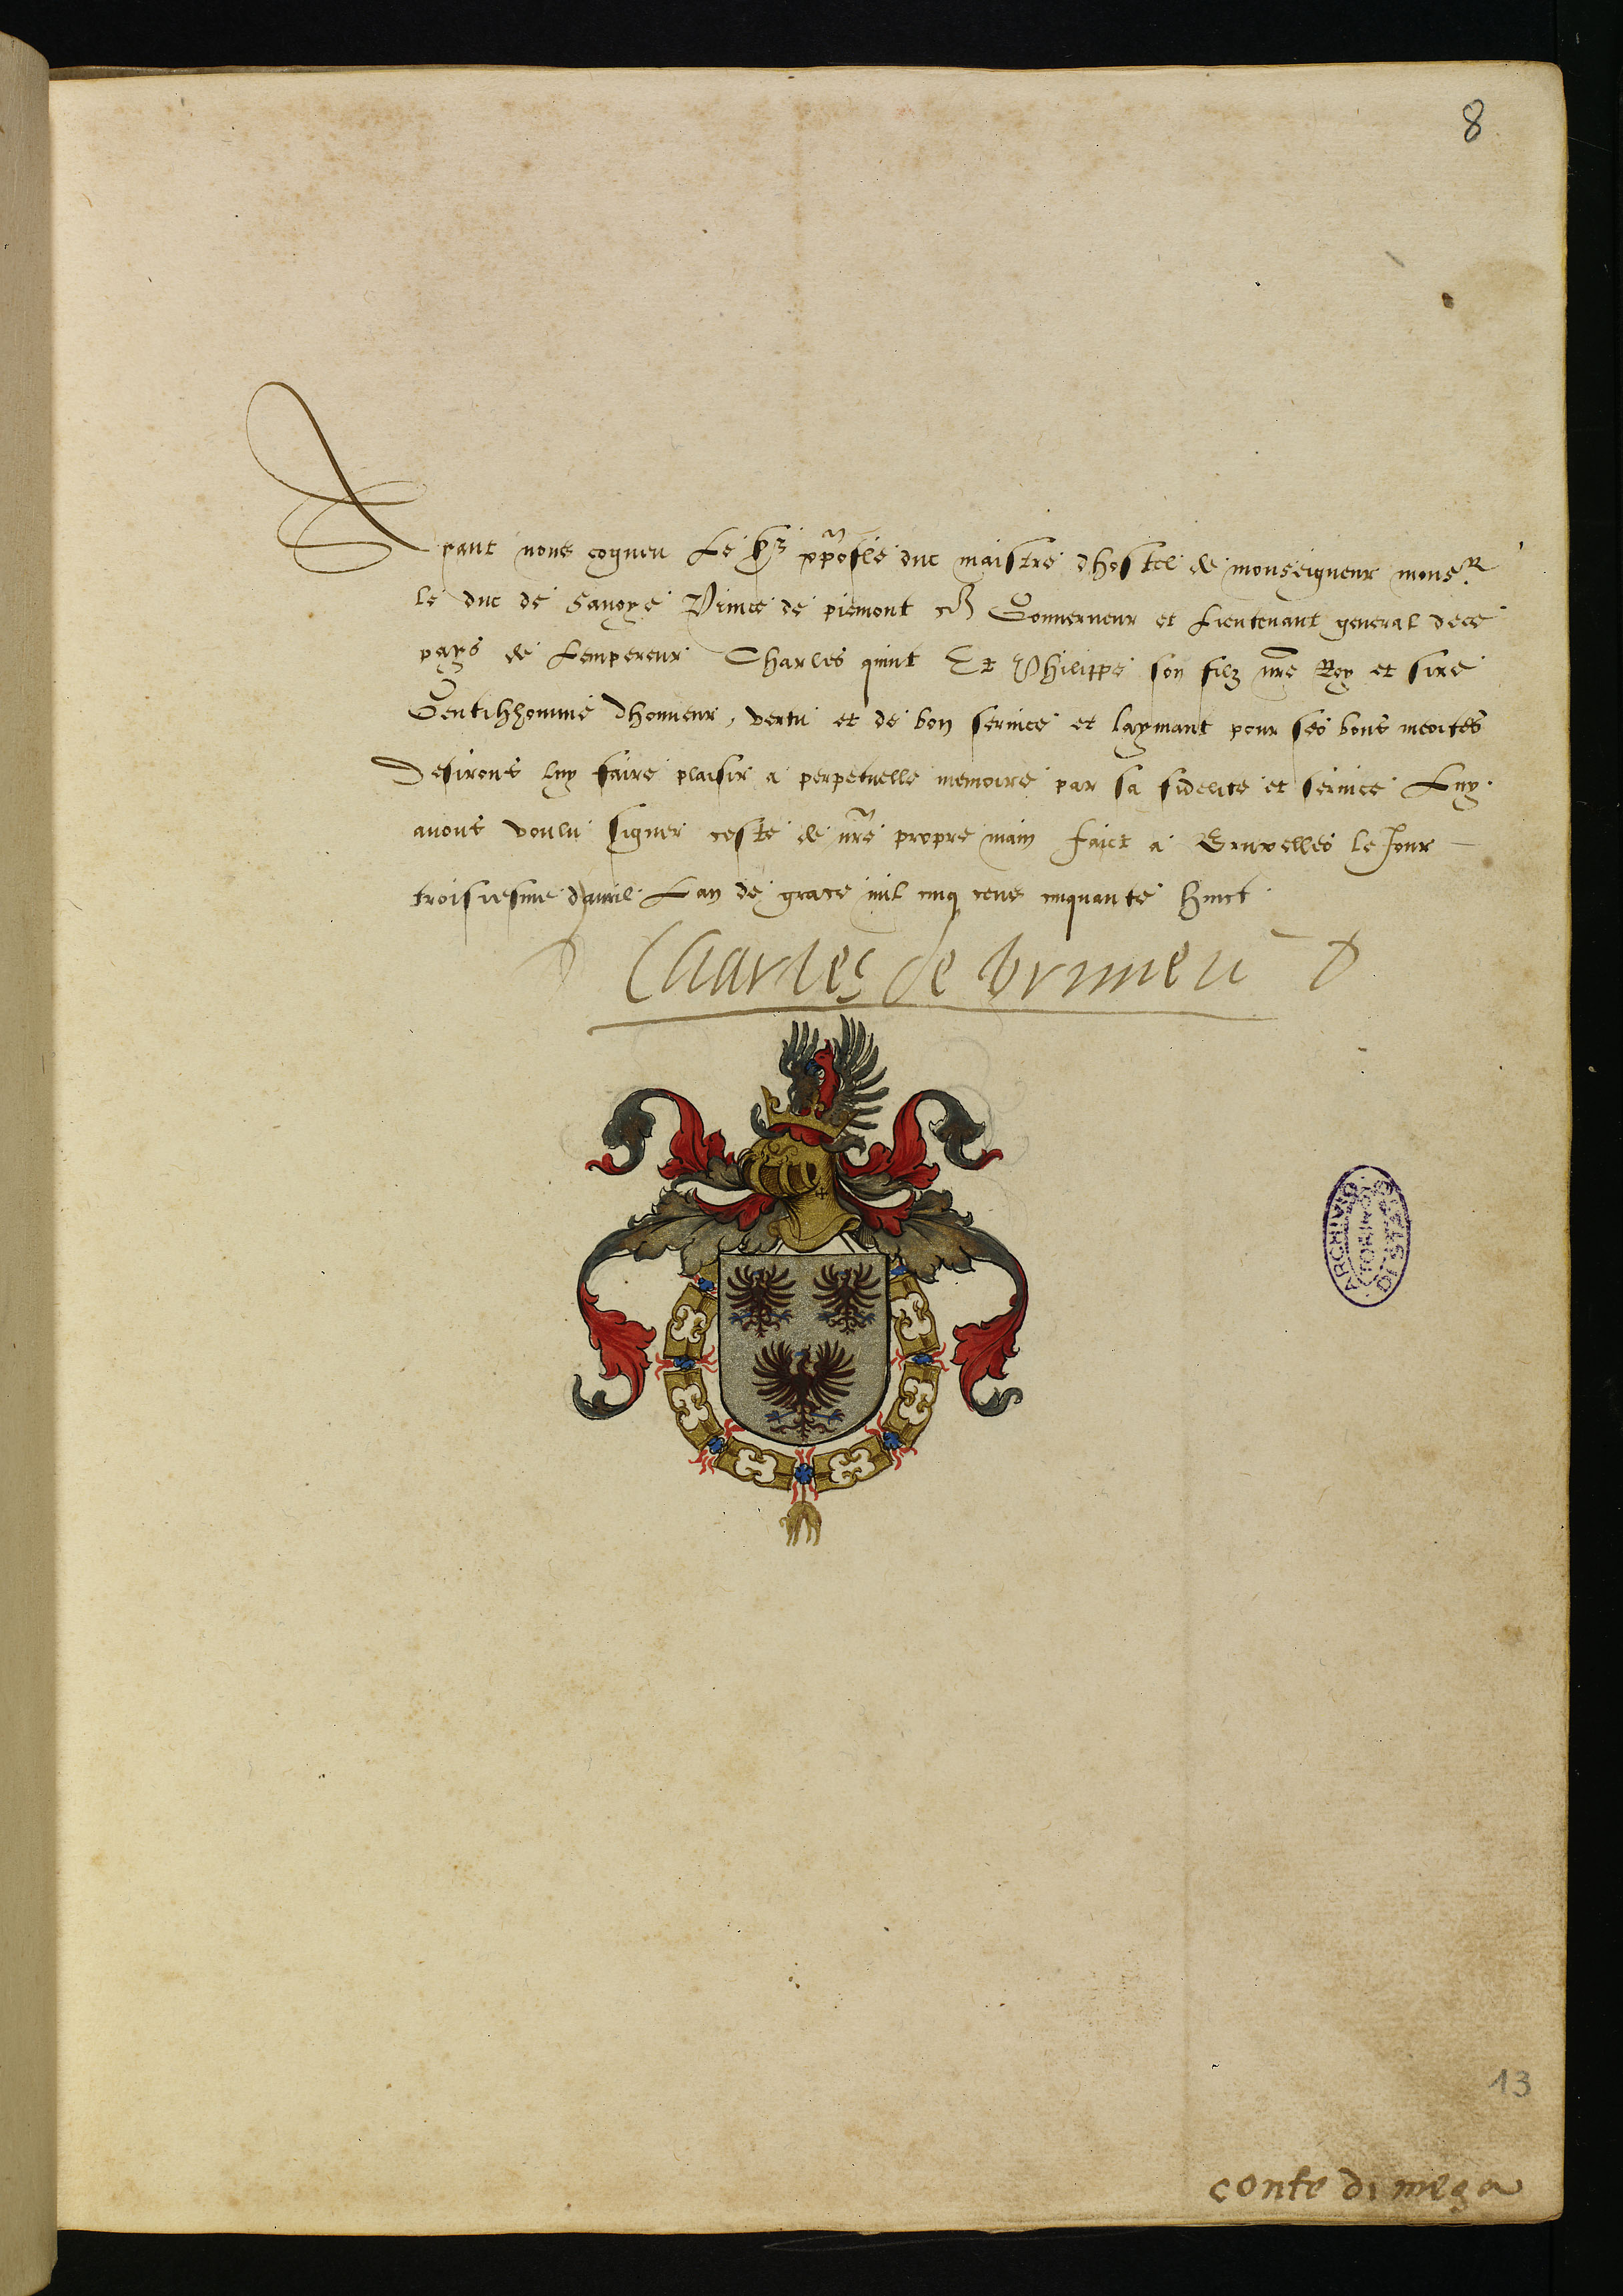 8
Ayant nous cogneu Le duc maistre dhostel de monseigneur monsR
le duc de Savoye Prince de piemont Gouverneur et Lieutenant general de ce
pays de Lempereur Charles quint Et Philippe son filz nre Roy et sire
Gentilhomme dhonneur, vertu et de bon service et laymant pour ses bons merites
Desirons luy faire plaisir a perpetuelle memoire par sa fidelite et service Luy
avons voulu signer ceste de nre propre main faict a Bruxelles le Jour
troisiesme davril Lan de grace mil cinq cens cinquante huict
Charles de brimeu
ARCHIVIO
DI STATO
TORINO
13
conte di mega